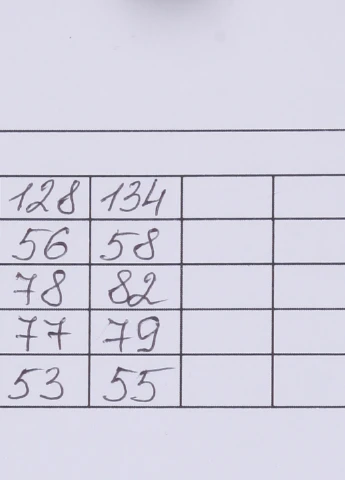 128 134
56 58
78 82
77 79
53 55